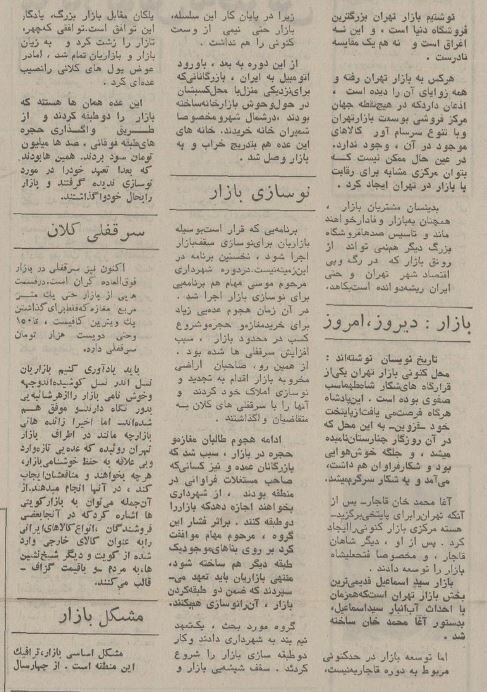 نوشتیم بازار تهران بزرگترین
فروشگاه دنیا است ، و این نه
اغراق است و نه هم یک مقایسه
نادرست .
هرکس به بازار تهران رفته و
همه زوایای آن را دیده است ،
اذعان دارد که در هیچ نقطه جهان
مرکز فروشی بوسعت بازار تهران
و با تنوع سرسام آور کالاهای
موجود در آن ، وجود ندارد.
در عین حال ممکن نیست که
بتوان مرکزی مشابه برای رقابت
با بازار در تهران ایجاد کرد .
بدینسان مشتریان بازار ،
همچنان به بازار وفادار خواهند
ماند و تاسیس صدها فروشگاه
بزرگ دیگر هم نمی تواند از
رونق بازار که در رگ و پی
اقتصاد شهر تهران و حتی
ایران ریشه دوانده است بکاهد.
بازار : دیروز، امروز
تاریخ نویسان نوشته‌اند :
محل کنونی بازار تهران یکی از
قرارگاه های شکار شاه طهماسب
صفوی بوده است . این پادشاه
هرگاه فرصت می یافت از پایتخت
خود -قزوین- به این محل که
در آن روزگار چنارستان نامیده
میشد ، و جلگه خوش هوایی
بود و شکار فراوان هم داشت،
می آمد و به شکار سرگرم میشد.
آغا محمد خان قاجار- پس از
آنکه تهران را برای پایتختی برگزید-
هسته مرکزی بازار کنونی را ایجاد
کرد . پس از او ، دیگر شاهان
قاجار ، و مخصوصا فتحعلیشاه
بازار را توسعه دادند .
بازار سید اسماعیل قدیمی ترین
بخش بازار تهران است که همزمان
با احداث آب انبار سید اسماعیل،
بدستور آغا محمد خان ساخته
شد .
اما توسعه بازار در حد کنونی
مربوط به دوره قاجاریه نیست،
زیرا در پایان کار این سلسله،
بازار حتی نیمی از وسعت
کنونی را هم نداشت .
از این دوره به بعد ، با ورود
اتومبیل به ایران ، بازرگانانی که
برای نزدیکی منزل با محل کسبشان
در حول و حوش بازار خانه ساخته
بودند ، در شمال شهر و مخصوصا
شمیران خانه خریدند. خانه های
این عده هم بتدریج خراب و به
بازار وصل شد .
نوسازی بازار
برنامه‌یی که قرار است بوسیله
بازاریان برای نوسازی سقف بازار
اجرا شود ، نخستین برنامه در
این زمینه نیست. در دوره شهرداری
مرحوم موسی مهام هم برنامه‌یی
برای نوسازی بازار اجرا شد .
در آن زمان هجوم عده‌یی زیاد
برای خرید مغازه و حجره و شروع
کسب در محدود بازار ، سبب
افزایش سرقفلی ها شده بود .
از همین رو، صاحبان اراضی
مخروبه بازار اقدام به تجدید و
نوسازی املاک خود کردند و
آنها را با سرقفلی های کلان به
متقاضیان واگذاشتند .
ادامه هجوم طالبان مغازه و
حجره در بازار ، سبب شد که
بازرگانان عمده و نیز کسانی که
صاحب مستغلات فراوانی در
منطقه بودند ، از شهرداری
بخواهند اجازه دهد که بازار را
دو طبقه کنند . براثر فشار این
گروه ، مرحوم مهام موافقت
کرد بر روی بناهای موجود یک
طبقه دیگر هم ساخته شود،
منتهی بازاریان باید تعهد می-
سپردند که ضمن دو طبقه کردن
بازار ، آن را نوسازی هم بکنند.
گروه مورد بحث ، یکشبه
نیم بند به شهرداری دادند و کار
دو طبقه سازی بازار را شروع
کردند . سقف شیشه‌یی بازار و
پاکان مقابل بازار بزرگ، یادگار
این توافق است. توافقی که چهره
بازار را زشت کرد و به زیان
بازار و بازاریان تمام شد ، اما در
عوض پول های کلانی را نصیب
عده‌ای کرد .
این عده همان ها هستند که
بازار را دو طبقه کردند و از
طریق واگذاری حجره
های طبقه فوقانی ، صدها میلیون
تومان سود بردند. همین ها بودند
که بعدا تعهد خود را در مورد
نوسازی ندیده گرفتند و بازار
را بحال خود واگذاشتند.
سرقفلی کلان
اکنون نیز سرقفلی در بازار
فوق العاده گران است. در قسمت
هایی از بازار حتی یک متر
مربع مغازه که فقط برای گذاشتن
یک ویترین کافیست ، تا ۱۵۰
وحتی دویست هزار تومان
سرقفلی دارد.
باید یادآوری کنیم بازاریان
نسل اندر نسل کوشیده‌اند وجهه
و خوش نامی بازار را از هر شائبه‌یی
بدور نگاه دارند و موفق هم
شده‌اند. اما اخیرا زائده هائی
بازارچه مانند در اطراف بازار
تهران روئیده که عده‌یی تازه وارد
وبی علاقه به حفظ خوشنامی بازار،
هرچه بخواهند و منافعشان ایجاب
کند ، در آنها انجام میدهند. از
آن جمله می توان به بازار کویتی
ها اشاره کرد که در آنجا بعضی
فروشندگان ، انواع کالاهای ایرانی
را به عنوان کالای خارجی وارد
شده از کویت و دیگر شیخ نشین
ها، به مردم و با قیمت گزاف -
قالب می کنند.
مشکل بازار
مشکل اساسی بازار، ترافیک
این منطقه است . از چهار سال